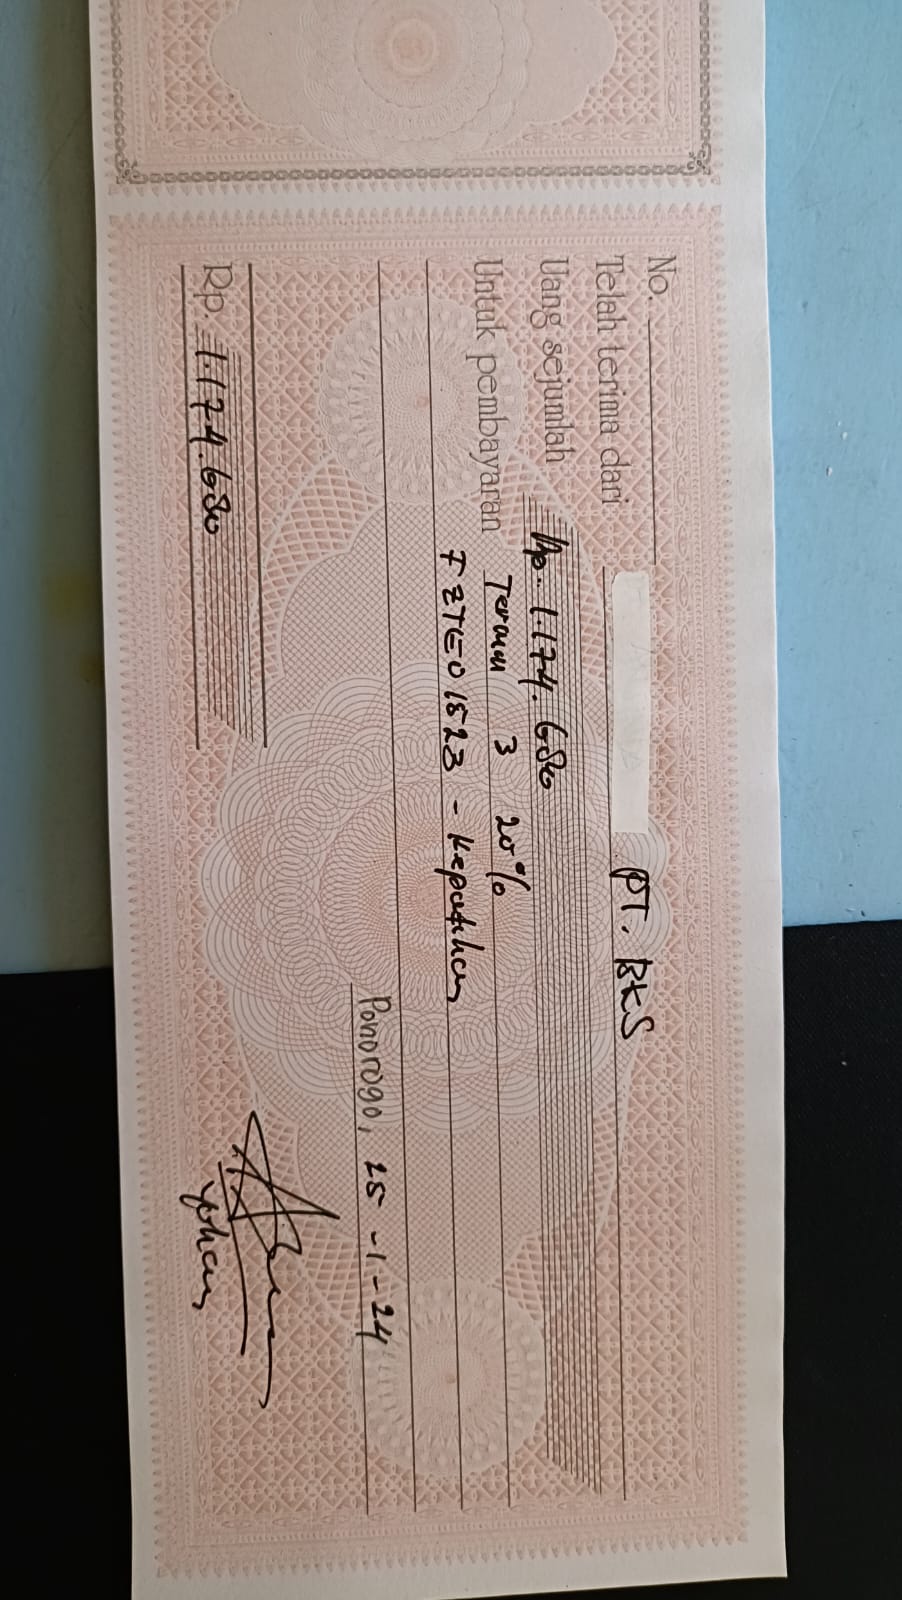 No.
Telah terima dari PT. BKS
Uang sejumlah Rp. 1.174.680
Untuk pembayaran Termin 3 20%
FZTE01523 - Kepatihan
Ponorogo, 25 -1-24
Rp. 1.174.680
Yohan